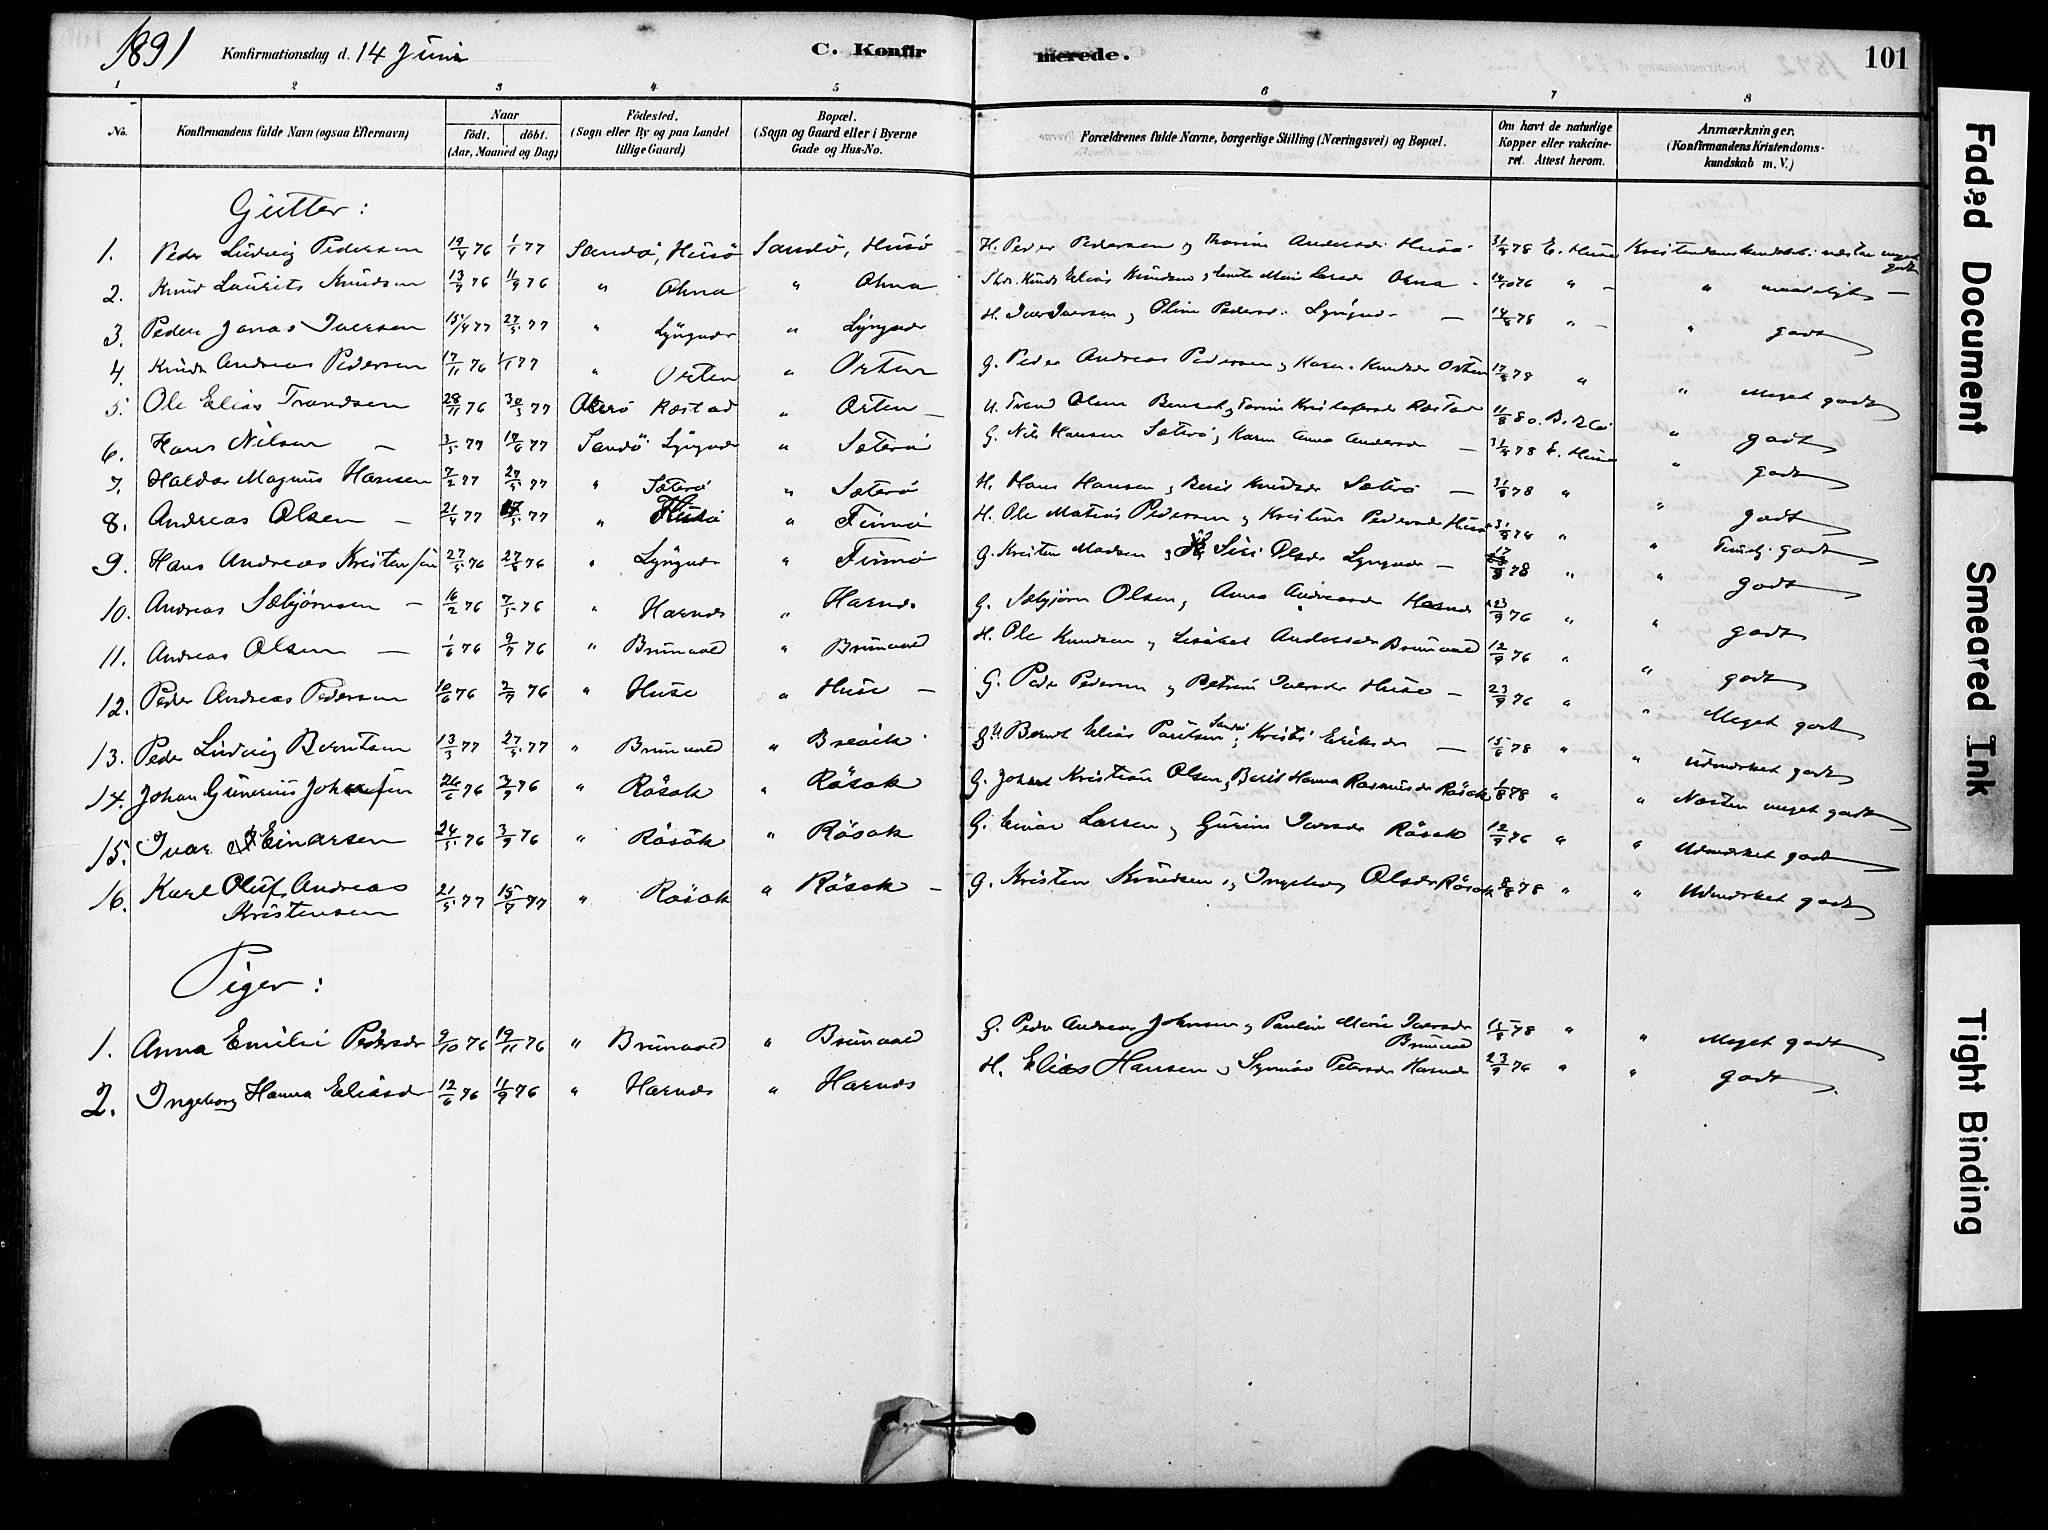 1891 Konfirmationsdag d. 14 Juni C. Konfir merede. 101
1 2 3 4 5 6 7 8
No. Konfirmandens fulde Navn (ogsaa Efternavn) Naar födt. döbt. (Aar, Maaned og Dag) Födested. (Sogn eller By og paa Landet tillige Gaard) Bopæl. (Sogn og Gaard eller i Byerne Gade og Hus-No. Forældrenes fulde Navne, borgerlige Stilling (Næringsvei) og Bopæl. Om havt de naturlige Kopper eller vakcineret. Attest herom. Anmærkninger. (Konfirmandens Kristendomskundskab m. V.)
Gutter:
1. Peder Ludvig Pedersen 19/4 76 1/1 77 Sandö, Husö Sandö, Husö H. Peder Pedersen Husö 31/8 78 Kristendomskundskab: næsten meget godt
2. Knud Laurits Knudsen 13/7 76 11/9 76 " Ohna " Ohna Knud Elias Knudsen Ohna 14/10 76 " " maadeligt
3. Peder Jonas Iversen 15/4 77 27/5 77 " Lyngvær " Lyngvær H. Iver Iversen & Oline Pedersd. Lyngvær 14/8 78 " " godt
4. Knud Andreas Pedersen 17/11 76 1/1 77 " Orten " Orten G. Peder Andreas Pedersen & Karen Knudsdr Orten 17/8 78 " " Meget godt
5. Ole Elias Trondsen 28/11 76 30/3 77 Akerö Röstad " Orten 11/8 80 " godt
6. Hans Nilsen 3/5 77 17/6 77 Sandö Lyngvær " Sæterö G. Nils Hansen Sæterö, Karen Anna Andersdr 31/8 78 " godt
7. Haldor Magnus Hansen 7/2 77 27/5 77 " Sæterö " Sæterö H. Hans Hansen & Berit Knudsdr Sæterö 31/8 78 " " godt
8. Andreas Olsen 21/4 77 77 " Husö " Finnö H. Ole Matias Pedersen & Kristine Pedersdr Husö " " Temlig godt
9. Hans Andreas Kristensen 27/5 76 27/8 76 " Lyngvær " Finnö G. Kristen Madsen & Siri Olsdr Lyngvær 78 " " godt
10. Andreas Sæbjörnsen 16/2 76 7/5 76 " Harnes " Harnes G. Sæbjörn Olsen, Anna Andreasdr Harnes 23/9 76 " " godt
11. Andreas Olsen 1/6 76 9/7 76 " Brunvold " Brunvold H. Ole Knudsen & Andersdr Brunvold 12/9 76 " " godt
12. Peder Andreas Pedersen 10/6 76 2/7 76 " Huse " Huse G. Peder Pedersen & Petrine Iversdr Huse 23/9 76 " " Meget godt
13. Peder Ludvig Berntsen 13/3 77 27/5 77 " Brunvold " Brevik Bernt Elias & Kristi Eriksdr 15/6 78 " " Udmærket godt
14. Johan Gunerius Johansen 26/6 76 3/9 76 " Rösok " Rösok G. Johan Kristian Olsen, Berit Hanna Rasmusdr Rösok 1/8 78 " " Næsten meget godt
15. Ivar Einarsen 24/5 76 3/9 76 " Rösok " Rösok G. Einar Larsen & Gurine Iversdr Rösok 12/9 76 " " Udmærket godt
16. Karl Oluf Andreas Kristensen 21/5 77 15/7 77 " Rösok " Rösok G. Kristen Knudsen & Ingeborg Olsdr Rösok 8/8 78 " " Udmærket godt
Piger:
1. Anna Emilie Pedersdr 9/10 76 19/11 76 " Brunvold " Brunvold G. Peder Andreas Johnsen & Pauline Marie Iversdr Brunvold 15/8 78 " " Meget godt
2. Ingeborg Hanna Eliasdr 12/6 76 11/9 76 " Harnes " Harnes H. Elias Hansen & Synnöv Petersdr Harnes 23/9 76 " " godt
Faded Document
Smeared Ink
Tight Binding